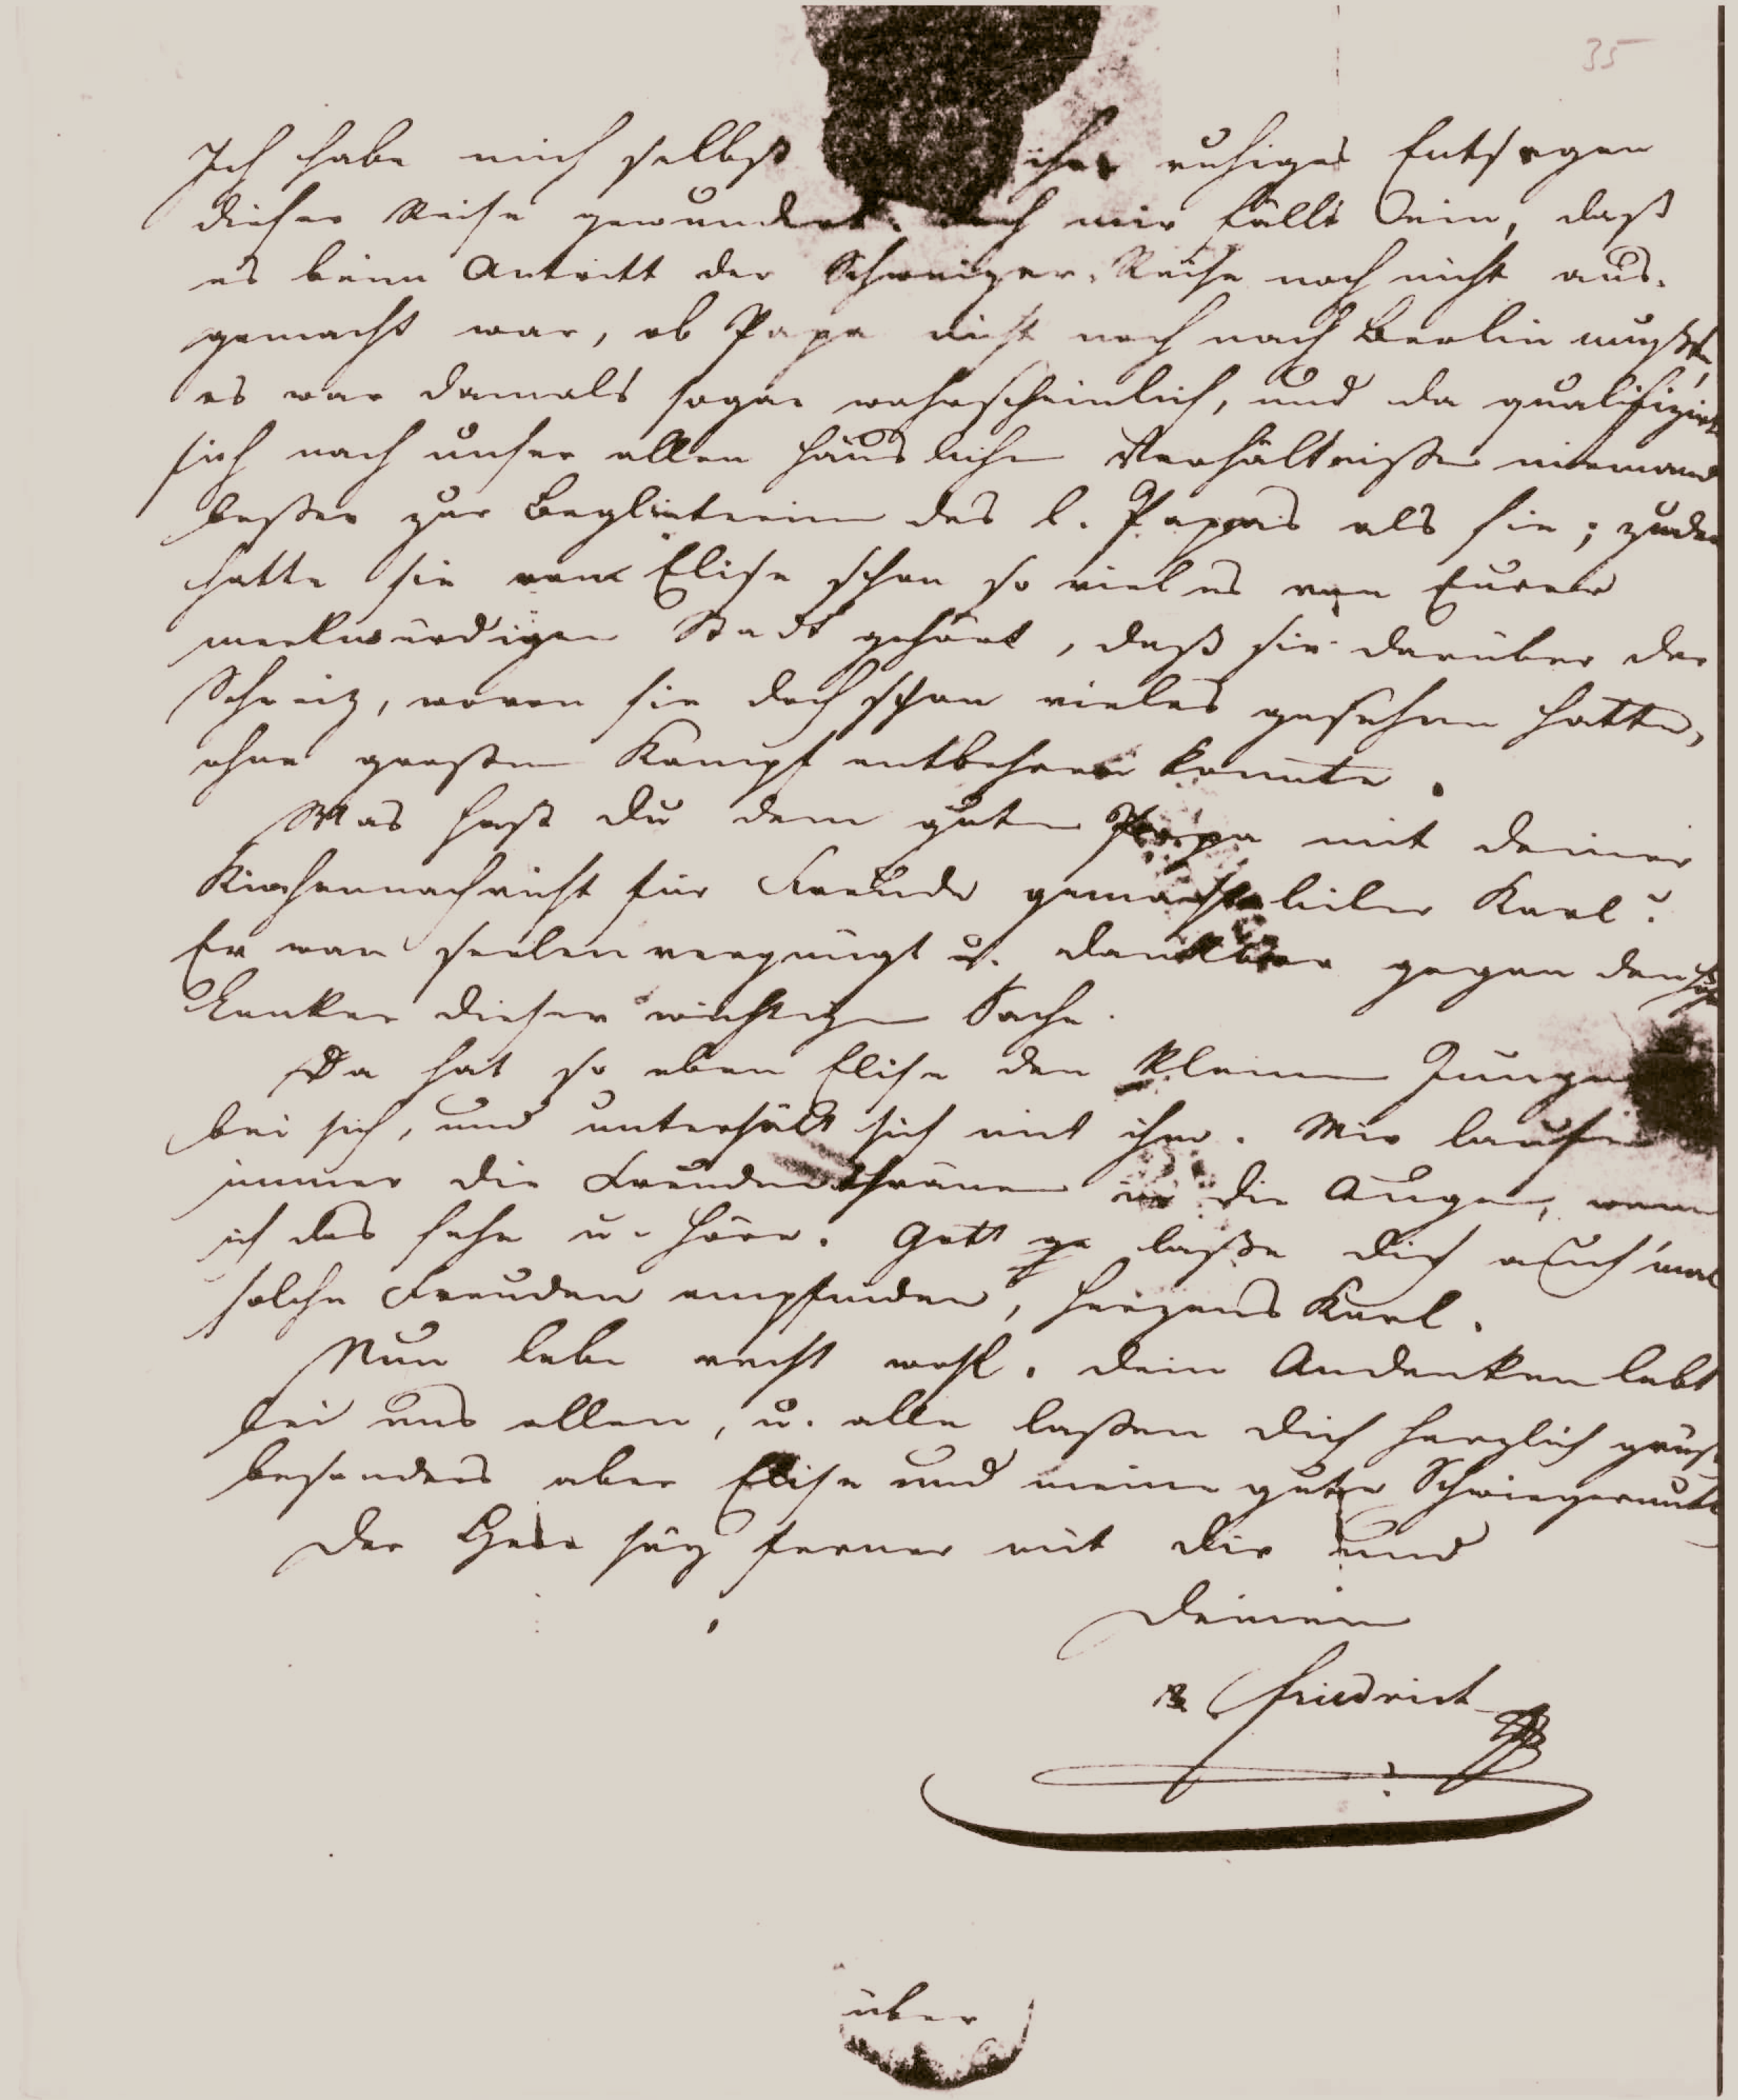 35
Ich habe mich selbst ihr ruhiges Entsagen
dieser Reise gewundert; doch mir fällt ein, daß
es beim Antritt der Schweizer-Reise noch nicht aus-
gemacht war, ob Papa nicht noch nach Berlin mußte,
es war damals sogar wahrscheinlich, und da qualifizirte
sich nach unser allen häuslichen Verhältnißen niemand
beßer zur Begleiterinn des l. Papas als sie; zudem
hatte sie von Elise schon so vieles von Eurer
merkwürdigen Stadt gehört, daß sie darüber der
Schweitz, wovon sie doch schon vieles gesehen hatte,
ohne großen Kampf entbehren konnte.
Was hast du dem guten Papa mit deiner
Kirchennachricht für Freude gemacht lieber Karl?
Er war seelenvergnügt u. dankbar gegen den
Lenker dieser wichtigen Sache.
Da hat so eben Elise den kleinen Jungen
bei sich, und unterhält sich mit ihm. Mir laufen
immer die Freudenthränen in die Augen, wenn
ich das sehe u. höre. Gott ge laße dich auch 'mal
solche Freuden empfinden, herzens Karl.
Nun lebe recht wohl. dein Andenken lebt
bei uns allen, u. alle laßen dich herzlich grüß
besonders aber Elise und meine gute Schwiegermutt
Der Herr sey ferner mit dir und
Deinem
Friedrich
über